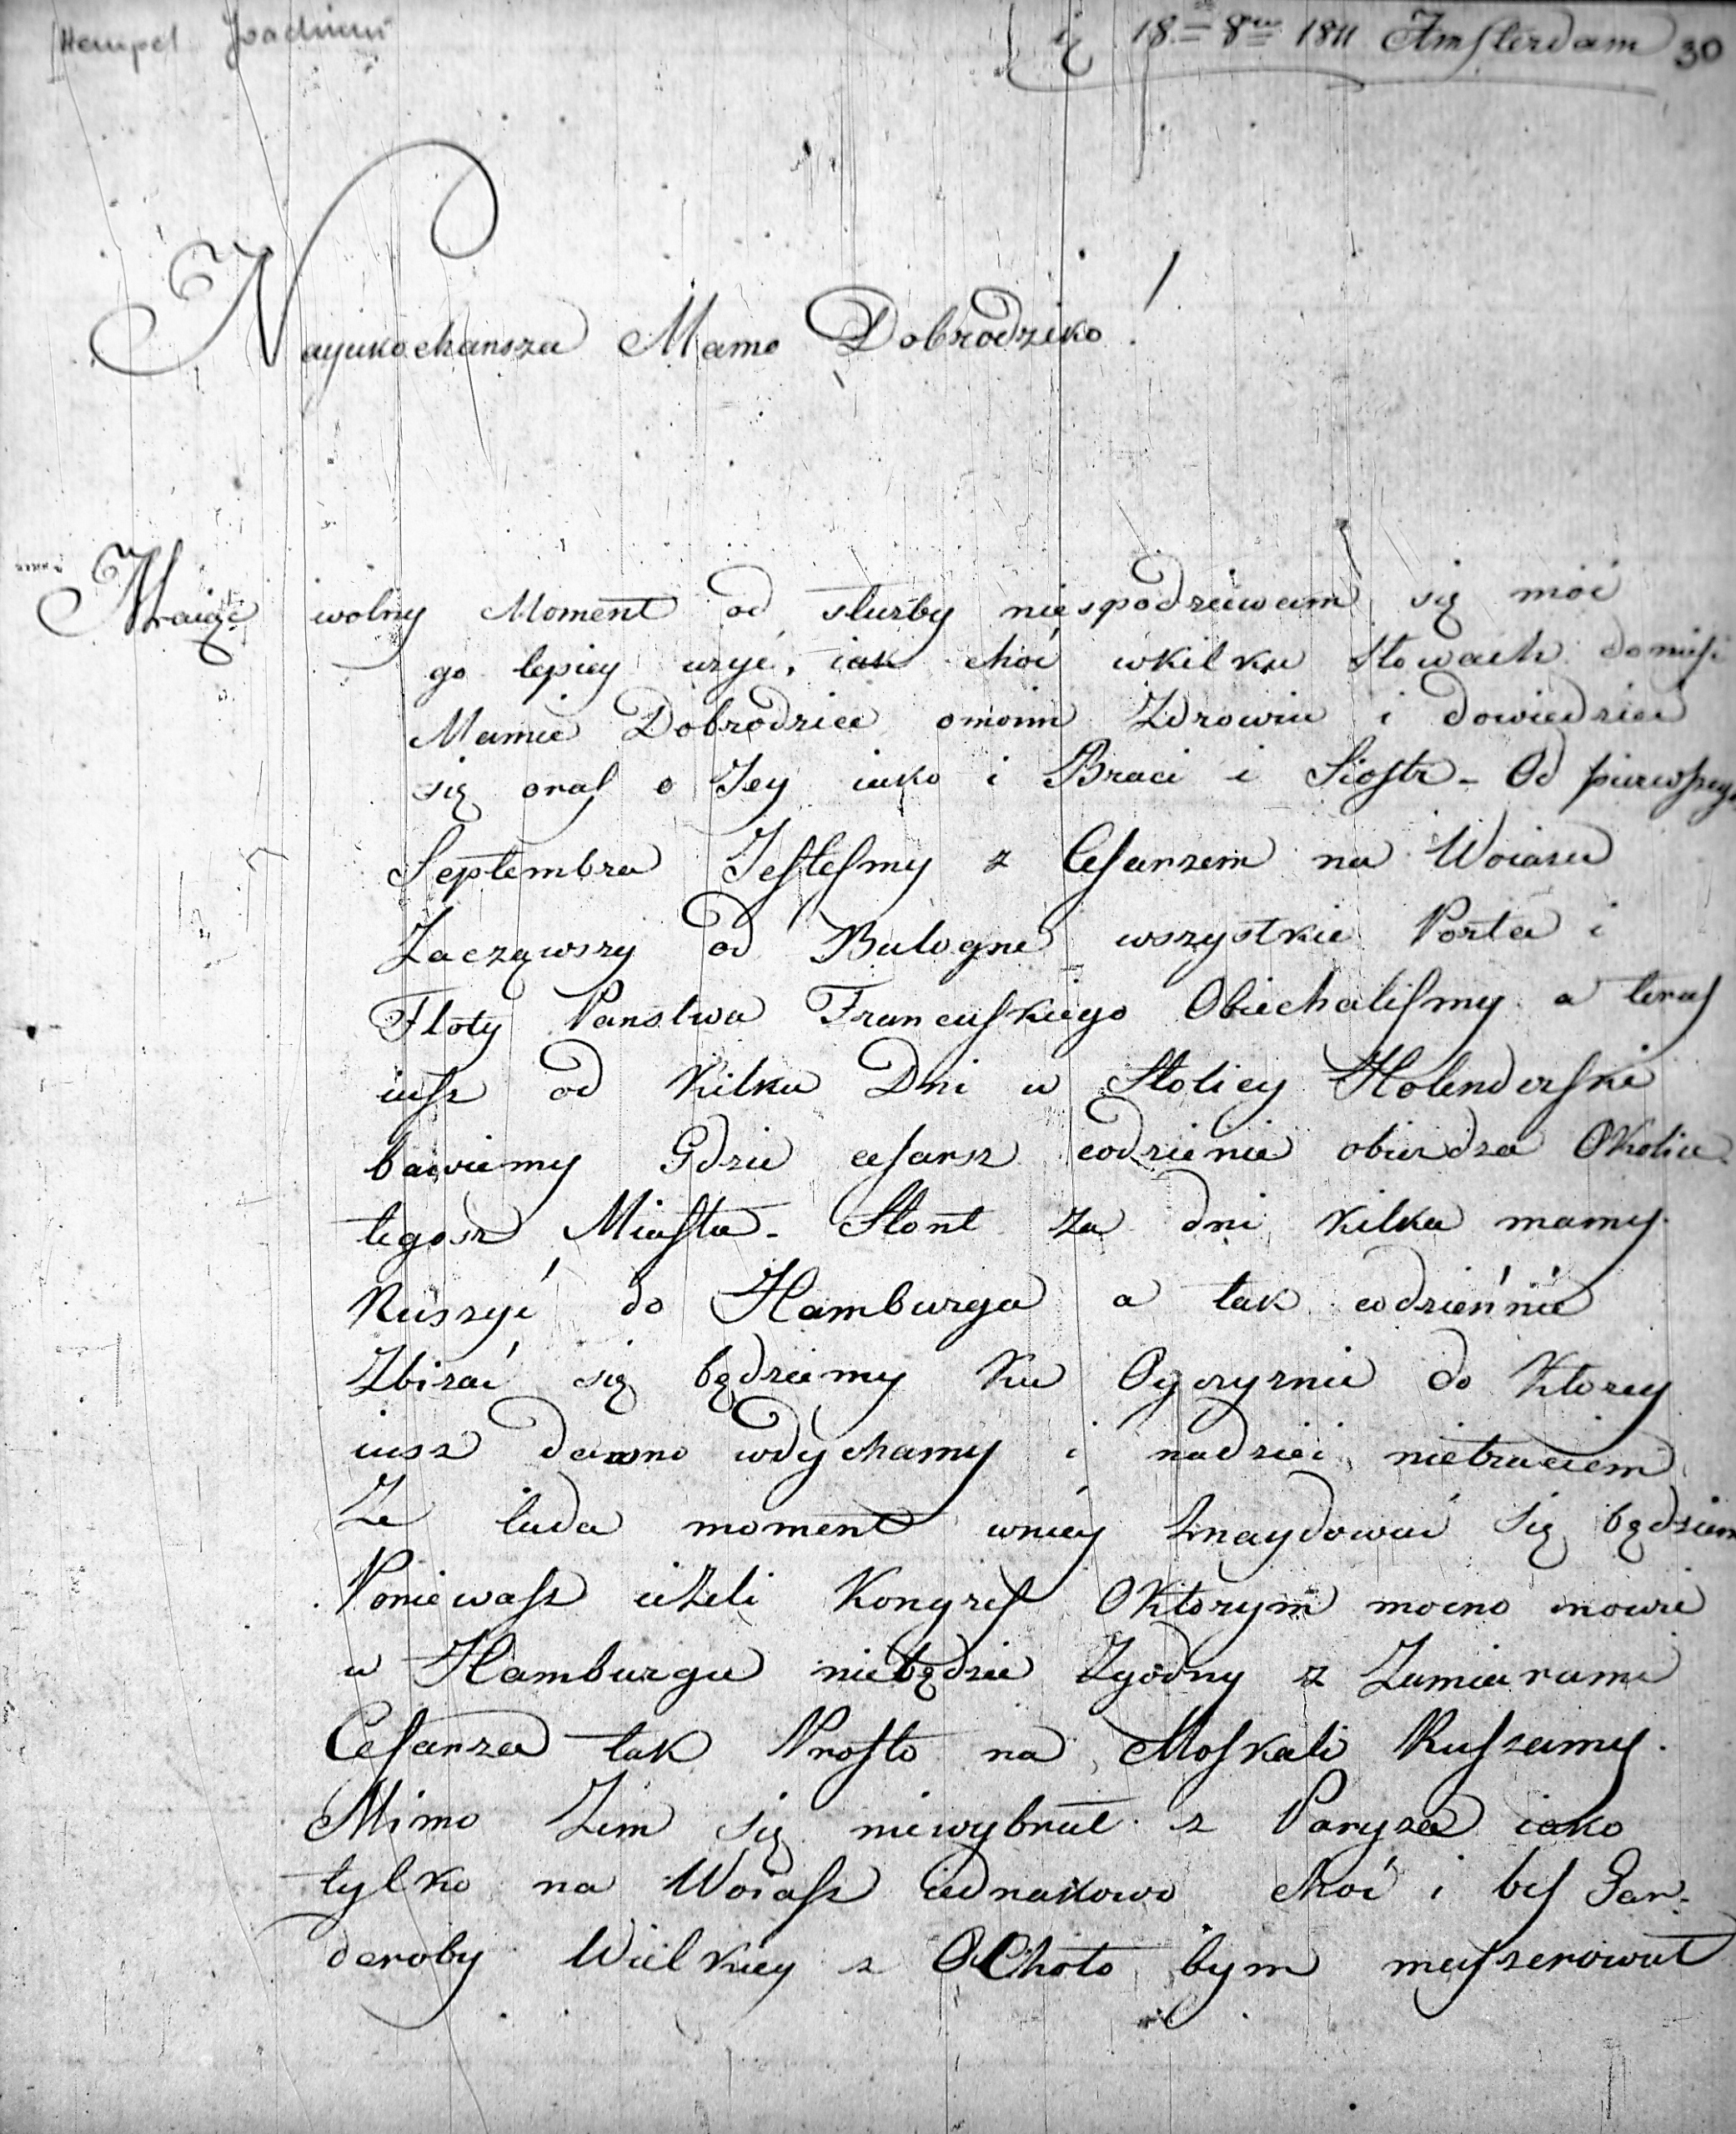 Hempel Joachim
18 8bre 1811 Amsterdam 30
Nayukochansza Mamo Dobrodziko!
Maiąc wolny Moment od służby niespodziewam się móć
go lepiey użyć, iak choć wkilku słowach donieść
Mamie Dobrodzice omoim Zdrowiu i dowiedzieć
się oraz o Jey iako i Braci i Siostr - Od pierwszego
Septembra Jestesmy z Cesarzem na Woiażu
Zacząwszy od Bulogne wszystkie Porta i
Floty Panstwa Francuskiego Obiechalismy a teras
iusz od Kilku Dni w Stolicy Holenderski
bawiemy Gdzie cesarz codzienie obieżdza Okolice
tegosz Miasta - Stont za dni kilka mamy
Ruszyć do Hamburga a tak codzień nie
Zbizać się będziemy Ku Oyczyznie do Ktorey
iusz dawno wdychamy i nadziei nietraciem
Ze lada moment wniey Znaydować się będziem
Poniewasz ieżeli Kongres Oktorym mocno mowie
w Hamburgu niebędzie Zgodny z Zamiarami
Cesarza tak Prosto na Moskali Ruszamy.
Mimo Zem się niewybrał z Paryża iako
tylko na Woiasz iednakowo choć i bes Gar-
deroby Wielkiey z OChoto bym maszerowal